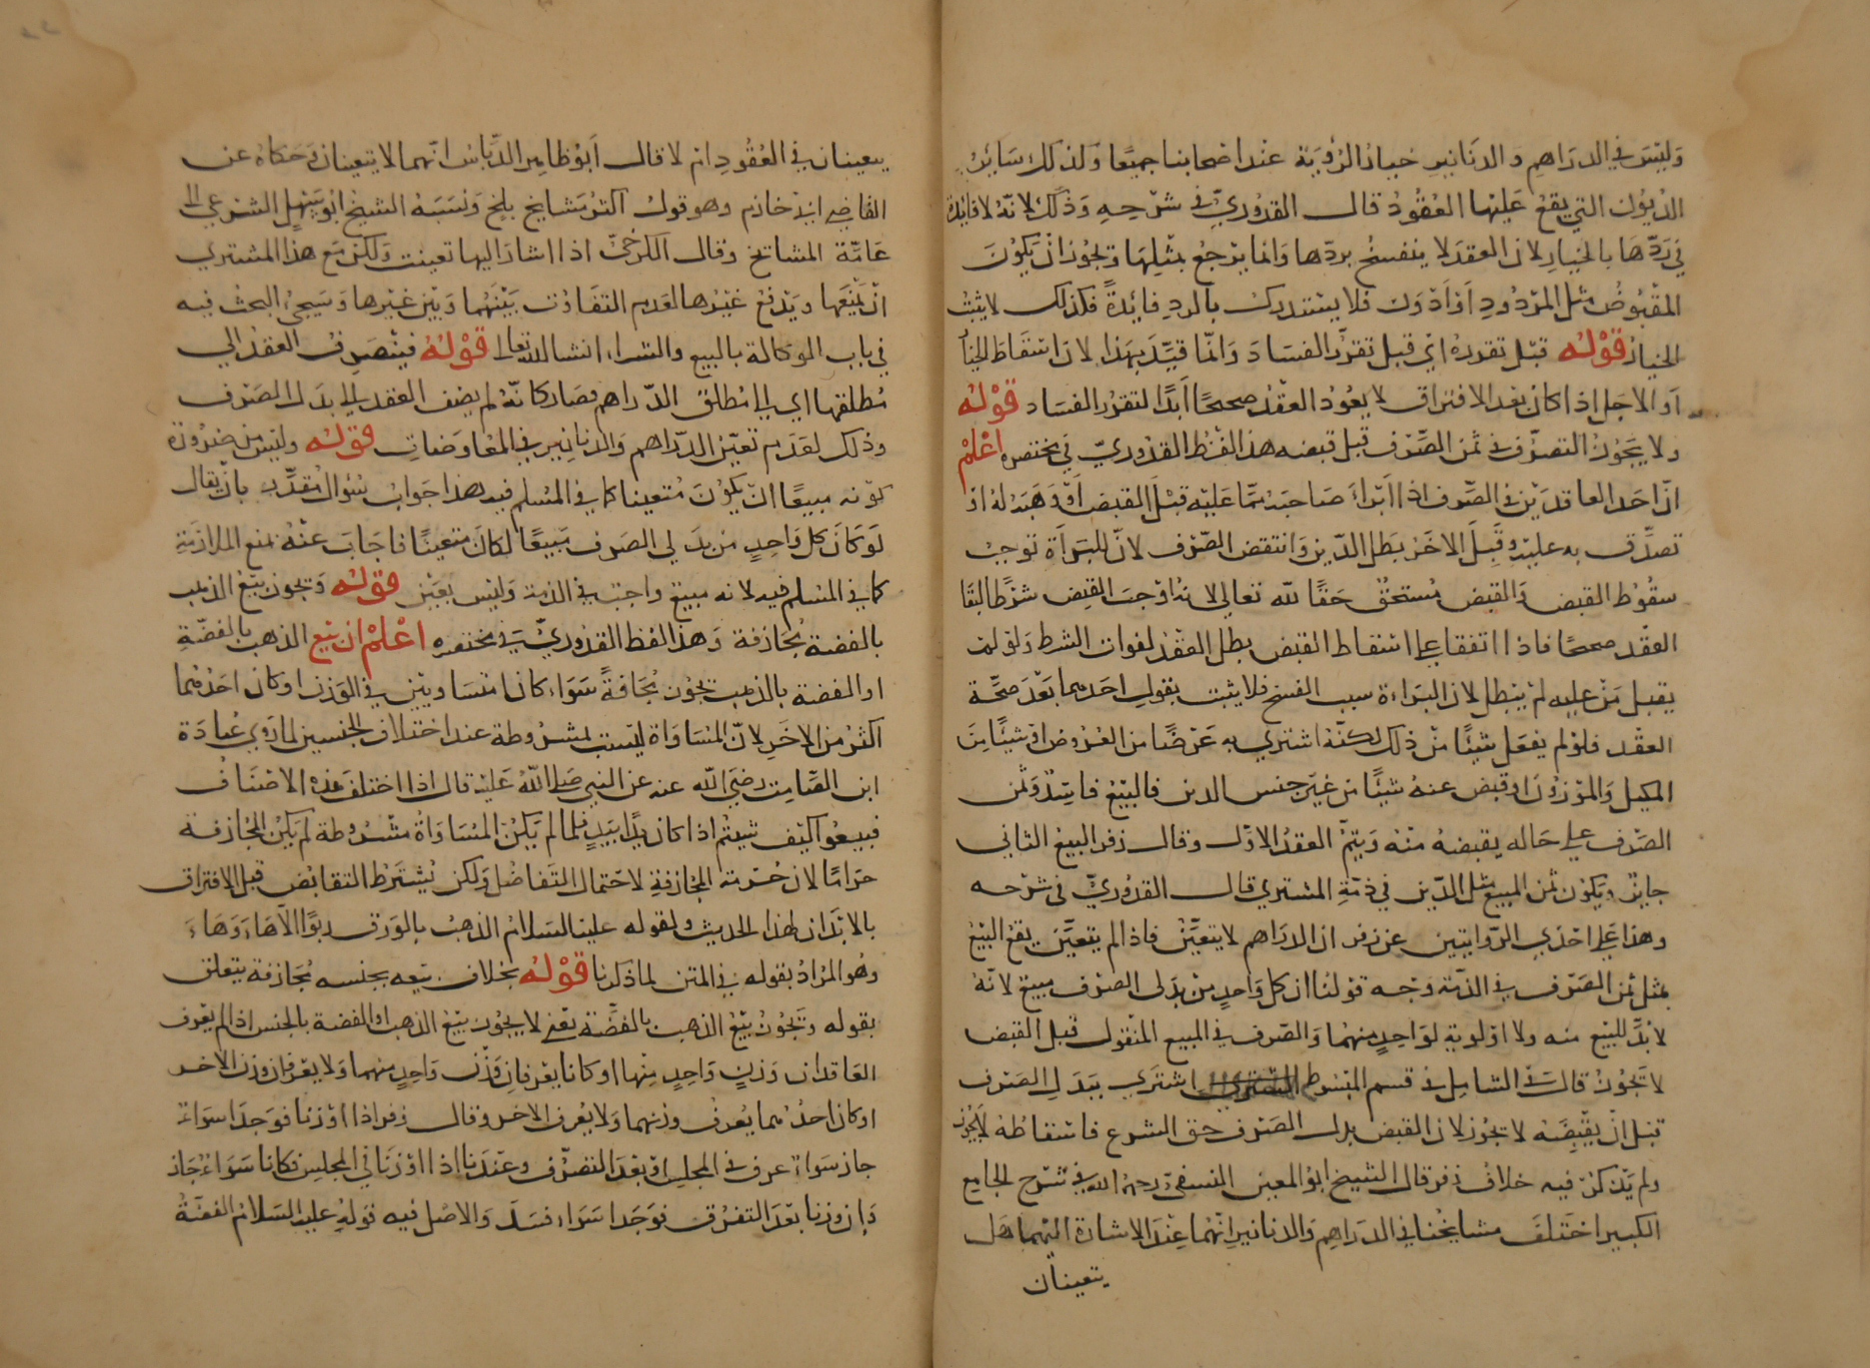 وَليسَ في الدرَاهِم وَالدنَانيرِ خيارُ الرُؤيَة عنْد اصْحابنا جميعًا وَلذلك سَايرُ
الدُيُون التي يقعُ عَليْها العُقُودُ قال القدُوريّ في شرْحِهِ وَذَلكَ لانّه لا فايدَة
في رَدّهَا بالخيارِ لان العقدَ لا ينفسخُ بردّها وَانما يرْجعُ بمثْلِهَا وَيجُوزُ انْ يَكُوْنَ
المقبُوضُ مثل المرْدُودِ اَوْ اَدْوَن فلا يسْتدرك بالردِ فايْدةً فكذلك لا يثبتُ
الخيارُ قوْلهُ قبْل تقررهُ ايْ قبل تقرّر الفسَادَ وَانّما قيّدَ بهذا لان اسْقَاط الخيَار
اَو الاجَل اِذا كان بعْد الافتراق لا يعُوْدُ العقْدُ صحيحًا اَبدًا لتقرّر الفسَاد قوْلهُ
ولا يَجُوْزُ التصرّف في ثمَن الصّرف قبْل قبضه هذا لفْظ القدُوريّ في مختصره اعْلَمْ
انّ احَد العاقدَيْن في الصّرف اذا اَبْرأ صَاحبَهُ ممّا عَليْه قبْلَ القبض اَوْ وَهَبَهُ لهُ اوْ
تصدّق به عليْه وقَبِلَ الاخَر بَطل الدّين وَانتقض الصّرف لانّ البَرأة توجبُ
سقُوْط القبض وَالقبض مُستحقّ حَقًا لله تعالى لانهُ اوْجبَ القبض شرْطًا لبقا
العقْد صحيحًا فاذا اتفقا على اسْقاط القبض بطل العقْد لفوات الشرط وَلوْ لم
يقبل مَنْ عليه لمْ يبْطل لان البرَاءة سبب الفسخ فلا يثبت بقول احَدهما بَعْدَ صحّة
العقْد فلوْ لم يفعَل شيئًا منْ ذلك لكنّهُ اشترى به عَرْضًا من العُرُوض اوْ شيئًا مِنَ
المكيل وَالموْزوْن اوْ قبض عنهُ شيئًا منْ غيْر جنس الدين فالبيْعُ فاسِدٌ وَثمن
الصّرف على حَاله يقبضهُ منْه وَيتمّ العقدُ الاوّل وقال زفر البيعُ الثاني
جايزٌ ويكوْن ثمن المبيع مثل الدّين في ذمّةِ المشتري قال القدُوريّ في شرْحه
وهذا عَلى احْدَى الرّوايتين عن زفر ان الدرَاهم لا يتعيَّنْ فاذا لم يتعيَّنْ يقع البيْع
بمثل ثمن الصّرف في الذمّة وَجْه قوْلنا ان كل وَاحدٍ منْ بدَلى الصرْف مبيعٌ لانّهُ
لا بُدّ للبيْع منه ولا اوْلويةِ لوَاحِدٍ منهُما وَالصّرف في المبيع المنْقول قبْل القبض
لا يَجُوْزُ قال في الشامِل في قسم المبْسُوط اشترَى ببَدَل الصّرف
قبْل انْ يقْبِضَهُ لا يجُوْز لان القبض بدل الصّرف حق الشرع فاسْقاطهُ لا يَجُوْز
ولم يَذْكرْ فيه خلافُ زفر قال الشيخ ابوُ المعين النسفيّ رحمهُ الله في شرْح الجامع
الكبير اخْتلَفَ مشايخُنا في الدرَاهِم وَالدنانير انّهُما عِنْدَ الاشارة اليْهما هَل
يتعينان
يتعينان في العُقُودِ ام لا قال اَبُوْ طاهر الدبّاس انّهما لا يتعينان وَحَكاهُ عن
القاضي ابي خازم وهو قول اكثر مَشايخ بلخ وَنسَبَهُ الشيخ ابوُ سَهْل الشرعي الى
عَامّة المشايخ وقال الكرْخيّ اذا اشارَ اليها تعينت وَلكنْ معَ هذا للمشتري
انْ يمْنعَها ويَدْفعَ غيْرهَا لعَدم التفَاوُت بَيْنهُما وَبَيْن غيْرها وَسَيجىُ البحْث فيه
في باب الوكالة بالبيع والشراء انشا الله تعالى قوْلهُ فينْصَرفُ العقْدُ الى
مُطلقهَا اي الى مُطلق الدّراهم فصَار كانّهُ لم يضف العقد الى بدَل الصّرف
وذلك لعَدَم تعيّن الدّراهم وَالدنانير في المعَاوَضاتِ قوْلهُ وليْسَ من ضرُورة
كوْنه مبيعًا انْ يَكُوْنَ مُتعينا كما في المُسلم فيه هذا جَوابُ سُؤال مُقدّر بانْ يقال
لَوْ كَانَ كل وَاحِدٍ من بدَلى الصرف مَبيعًا لكانَ متعيّنًا فاجَابَ عنْهُ بمنع الملازَمَةِ
كما في المسْلم فيه لانه مبيعٌ واجبٌ في الذمة وَليسَ بعَيْن قوْلهُ وَيجوزُ بيْعُ الذهب
بالفضة مُجَازفة وَهذا لفظ القدُوريّ في مختصره اعْلَمْ انّ بيْع الذهب بالفضّةِ
او الفضة بالذهب يجُوزُ مُجَازفةً سَوَاء كانا متسَاوييْن في الوَزن او كان احَدُهُما
اكثر من الاخَر لانّ المُسَاوَاة ليْست بمشرُوطة عند اختلاف الجنسين لما رَوَى عُبادَة
ابن الصّامِت رضيَ اللهُ عنه عن النبي صَلى اللهُ عَليْه قال اذا اختلفَ هذه الاصْنَافُ
فبيعُوا كيْف شيْتمْ اذا كان يدًا بيَدٍ فلما لم يَكن المُسَاوَاةُ مَشرُوطة لم يَكن المجَازفة
حرَامًا لان حُرْمة المجَازفةِ لاحتمال التّفاضل وَلكن يُشْترَط التقابُض قبل الافتراق
بالابْدَان لهذا الحديث ولقوله عليه السّلامُ الذهبُ بالوَرق ربوًا الاّ هَاءَ وَهَاءَ
وهُو المرَادُ بقوله في المتن لما ذكرنا قوْلهُ بخلاف بيعه بجنسه مُجَازفة يتعلق
بقوله وَيَجُوْزُ بَيْعُ الذهب بالفضّة يعْني لا يجُوز بيْعُ الذهب او الفضة بالجنس اذا لم يعْرف
العَاقدان وَزْنِ وَاحِدٍ مِنْهما اوْ كانا يعْرفانِ وَزْن وَاحِدٍ منهما وَلا يعْرفان وزن الاخر
اوْ كان احدُهُما يُعرفُ وزنهما وَلا يُعْرف الاخر وقال زفر اذا وُزنا فوَجدَا سوَاءً
جاز سَواءٌ عرف في المجلِس اوْ بعْدَ التفرّق وعنْدَنا اذا وُزنا في المجْلِس فكانا سَوَاءً جَاز
وَان وزنا بعْدَ التفرّق فوَجَدا سَوَاءً فسَدَ وَالاصْل فيه قوْلهُ عليه السّلامُ الفضّةُ